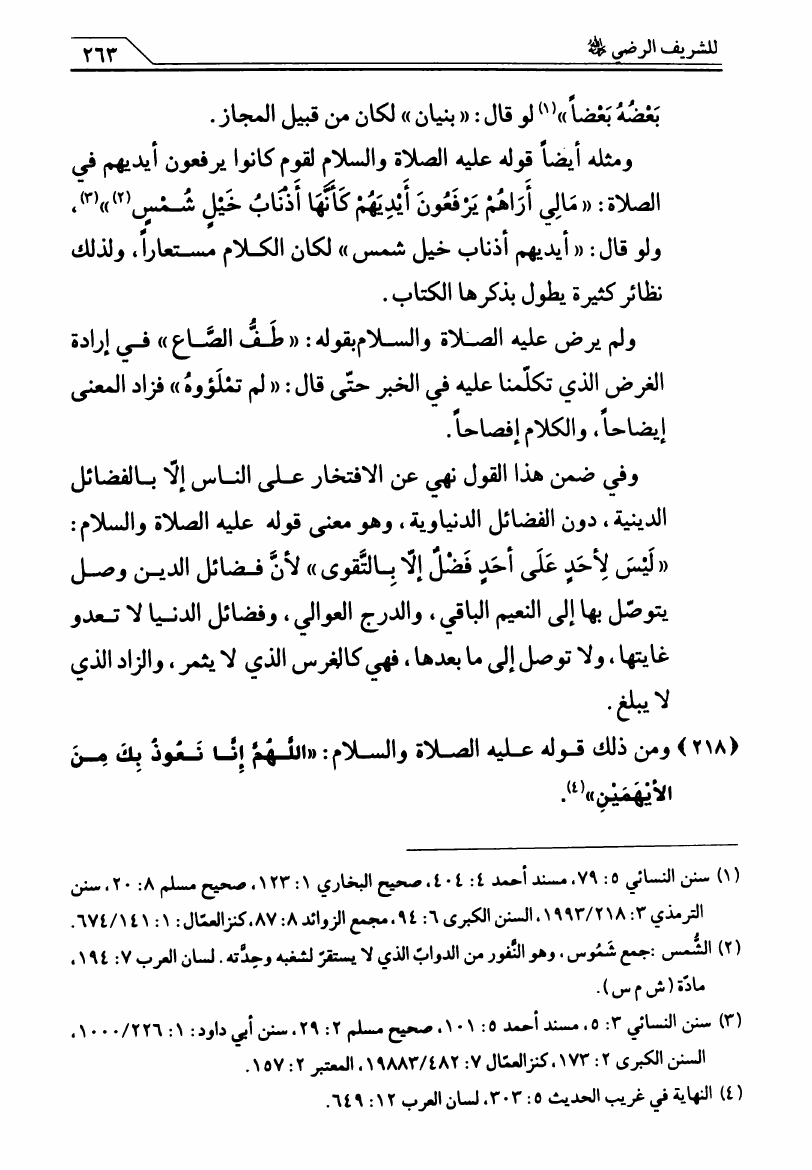 للشريف الرضي ﷫
٢٦٣
بَعْضُهُ بَعْضاً»(١) لو قال: «بنيان» لكان من قبيل المجاز.
ومثله أيضاً قوله عليه الصلاة والسلام لقوم كانوا يرفعون أيديهم في
الصلاة: «مَالِي أَرَاهُمْ يَرْفَعُونَ أَيْدِيَهُمْ كَأَنَّهَا أَذْنَابُ خَيْلٍ شُـمْسٍ(٢)»(٣)،
ولو قال: «أيديهم أذناب خيل شمس» لكان الكلام مستعاراً، ولذلك
نظائر كثيرة يطول بذكرها الكتاب.
ولم يرض عليه الصلاة والسلام بقوله: «طَفُّ الصَّاع» في إرادة
الغرض الذي تكلّمنا عليه في الخبر حتّى قال: «لم تمْلَؤوهُ» فزاد المعنى
إيضاحاً، والكلام إفصاحاً.
وفي ضمن هذا القول نهي عن الافتخار على الناس إلّا بالفضائل
الدينية، دون الفضائل الدنياوية، وهو معنى قوله عليه الصلاة والسلام:
«لَيْسَ لِأحَدٍ عَلَى أحَدٍ فَضْلٌ إلّا بِالتَّقوى» لأنَّ فضائل الدين وصل
يتوصّل بها إلى النعيم الباقي، والدرج العوالي، وفضائل الدنيا لا تعدو
غايتها، ولا توصل إلى ما بعدها، فهي كالغرس الذي لا يثمر، والزاد الذي
لا يبلغ.
﴿٢١٨﴾ ومن ذلك قوله عليه الصلاة والسلام: «اللَّهُمَّ إِنَّا نَعُوذُ بِكَ مِنَ
الأَيْهَمَيْنِ»(٤).
(١) سنن النسائي ٥: ٧٩، مسند أحمد ٤: ٤٠٤، صحيح البخاري ١: ١٢٣، صحيح مسلم ٨: ٢٠، سنن
الترمذي ٣: ١٩٩٣/٢١٨، السنن الكبرى ٦: ٩٤، مجمع الزوائد ٨: ٨٧، كنز العمّال: ١: ٦٧٤/١٤١.
(٢) الشُمس: جمع شَمُوس، وهو النَّفور من الدوابّ الذي لا يستقرّ لشغبه وحِدَّته. لسان العرب ٧: ١٩٤،
مادّة (ش م س).
(٣) سنن النسائي ٣: ٥، مسند أحمد ٥: ١٠١، صحيح مسلم ٢: ٢٩، سنن أبي داود: ١: ١٠٠٠/٢٢٦،
السنن الكبرى ٢: ١٧٣، كنز العمّال ٧: ١٩٨٨٣/٤٨٢، المعتبر ٢: ١٥٧.
(٤) النهاية في غريب الحديث ٥: ٣٠٣، لسان العرب ١٢: ٦٤٩.